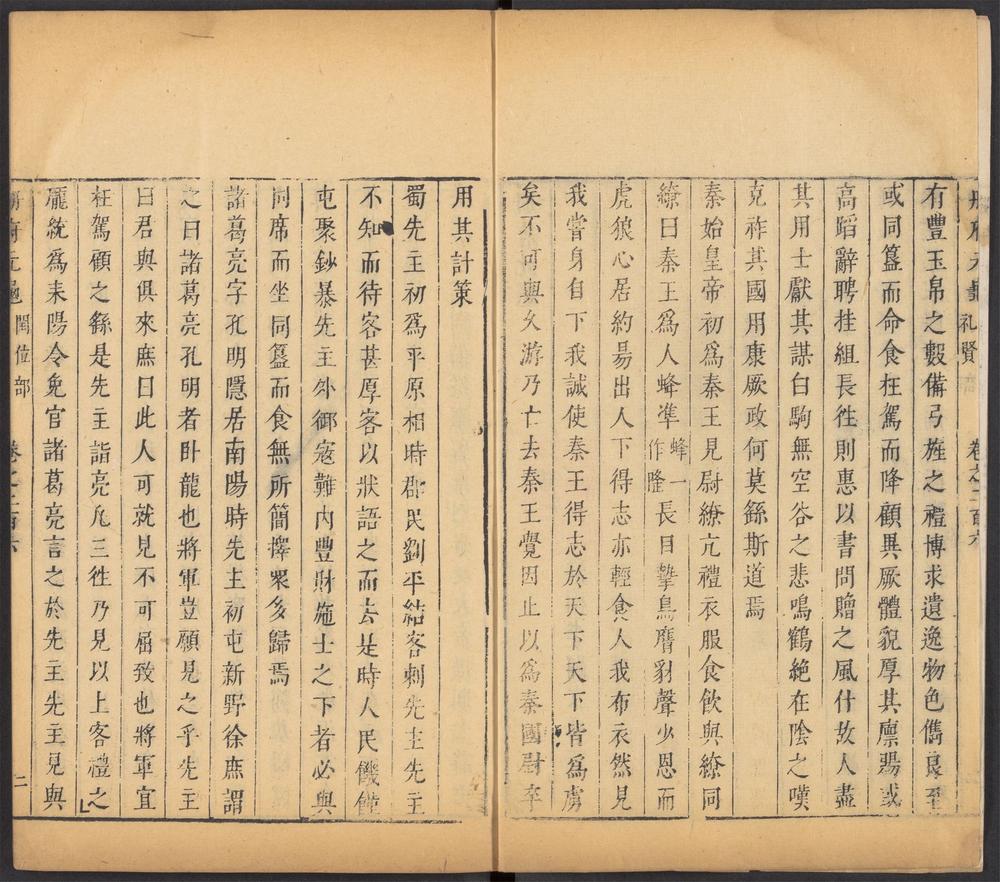 冊府元龜 礼賢 卷之二百六
有豐玉帛之數備弓旌之禮博求遺逸物色儁良至
或同簋而命食枉駕而降顧異厥體貌厚其廪賜或
高蹈辭聘挂組長徃則惠以書問贈之風什故人盡
其用士獻其謀白駒無空谷之悲鳴鶴絶在陰之嘆
克祚其國用康厥政何莫繇斯道焉
秦始皇帝初爲秦王見尉繚亢禮衣服食飲與繚同
繚曰秦王爲人蜂準蜂一作隆長目摯鳥膺豺聲少恩而
虎狼心居約易出人下得志亦輕食人我布衣然見
我嘗身自下我誠使秦王得志於天下天下皆爲虜
矣不可與久游乃亡去秦王覺因止以爲秦國尉卒
用其計策
蜀先主初爲平原相時郡民劉平結客刺先主先主
不知而待客甚厚客以狀語之而去是時人民饑饉
屯聚鈔暴先主外禦寇難内豐財施士之下者必與
同席而坐同簋而食無所簡擇衆多歸焉
諸葛亮字孔明隱居南陽時先主初屯新野徐庶謂
之曰諸葛亮孔明者卧龍也將軍豈願見之乎先主
曰君與俱來庶曰此人可就見不可屈致也將軍宜
枉駕顧之繇是先主詣亮凡三徃乃見以上客禮之
龐統爲耒陽令免官諸葛亮言之於先主先主見與
冊府元龜 閏位部 卷之二百六 二